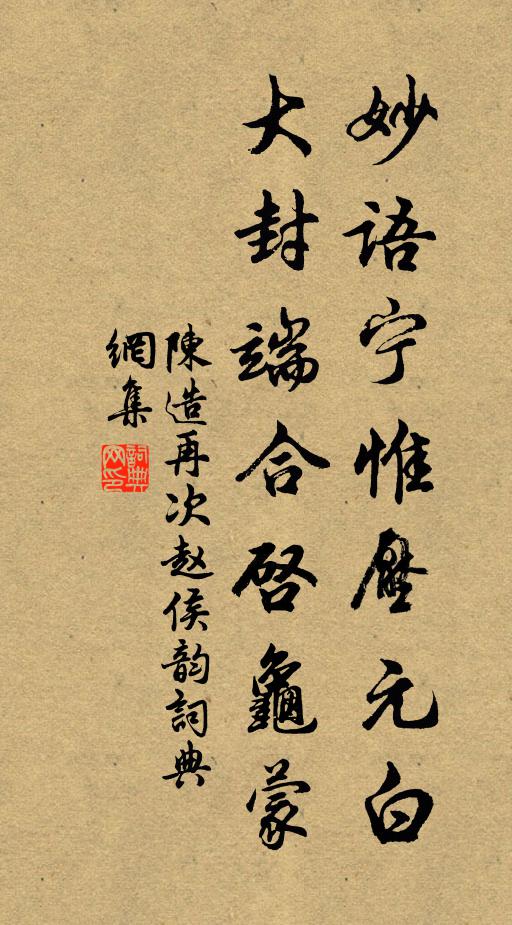 妙语宁惟壓元白
大封端合啓龜蒙
陳造再次赵侯韵詞典
網集
詞典網印